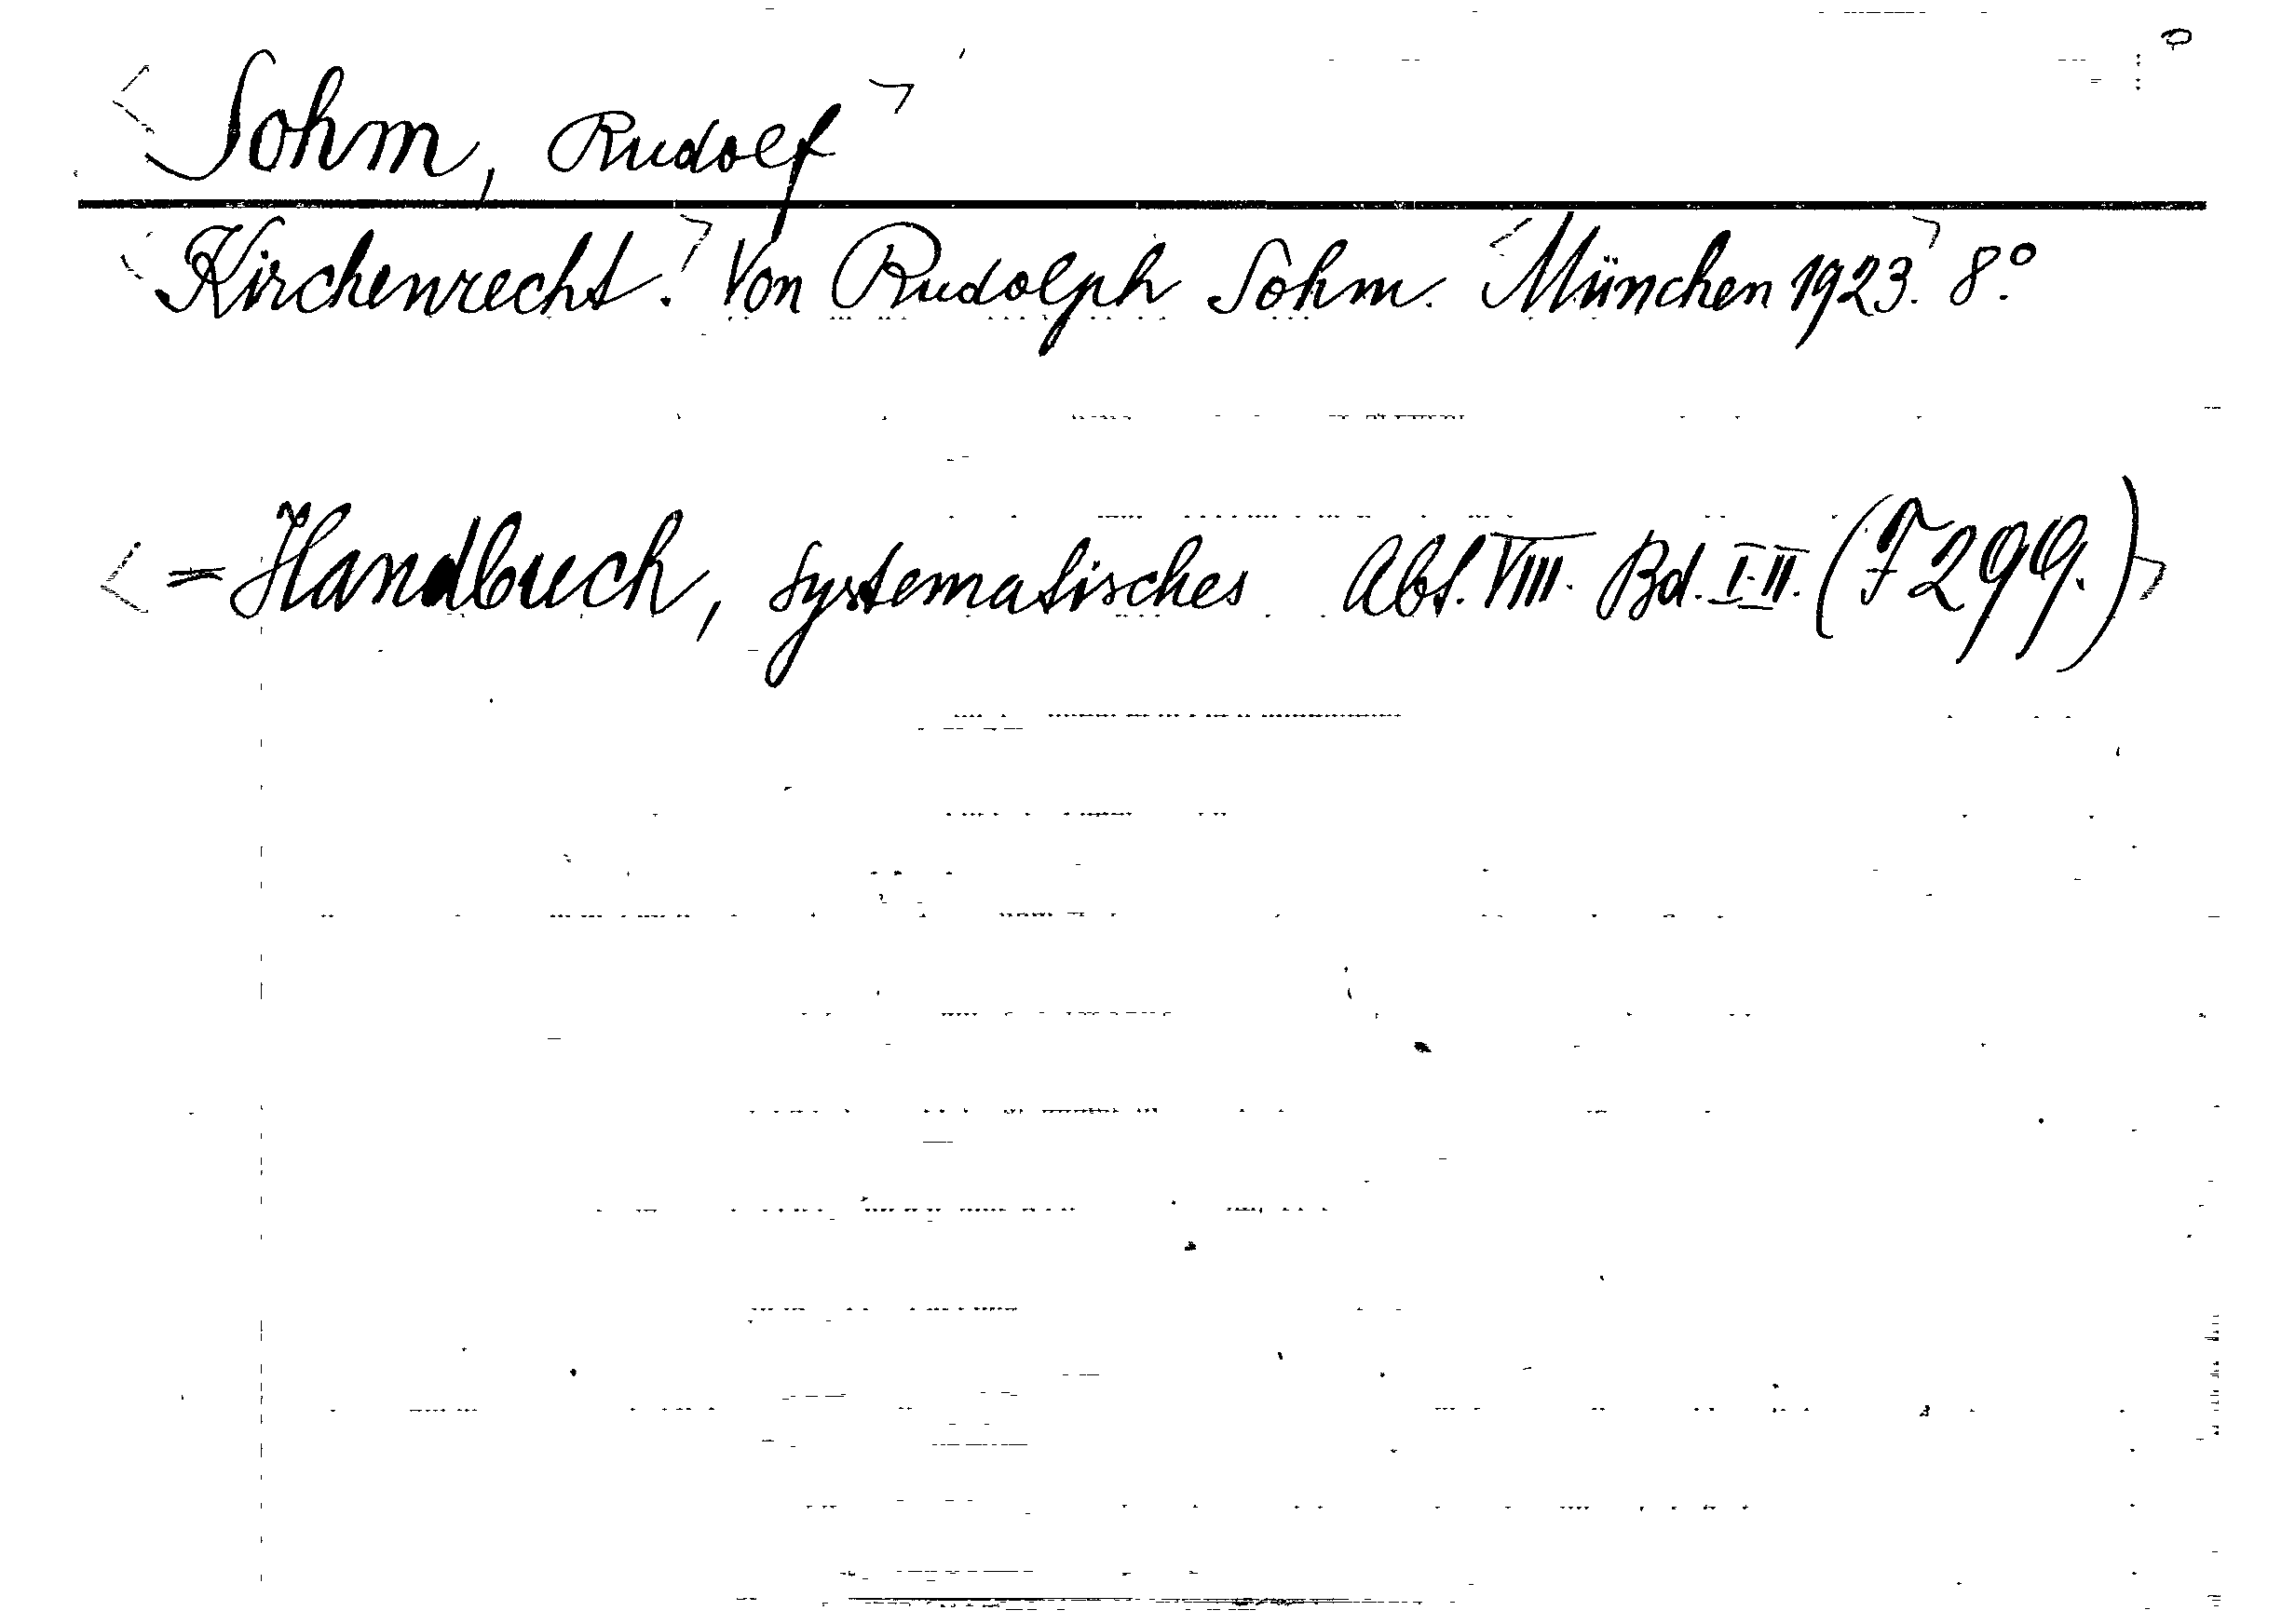 <Sohm, Rudolf>
<Kirchenrecht.> Von Rudolph Sohm. <München 1923.> 8°.
<= Handbuch, systematisches Abt. VIII. Bd. I-II. (F 299.)>